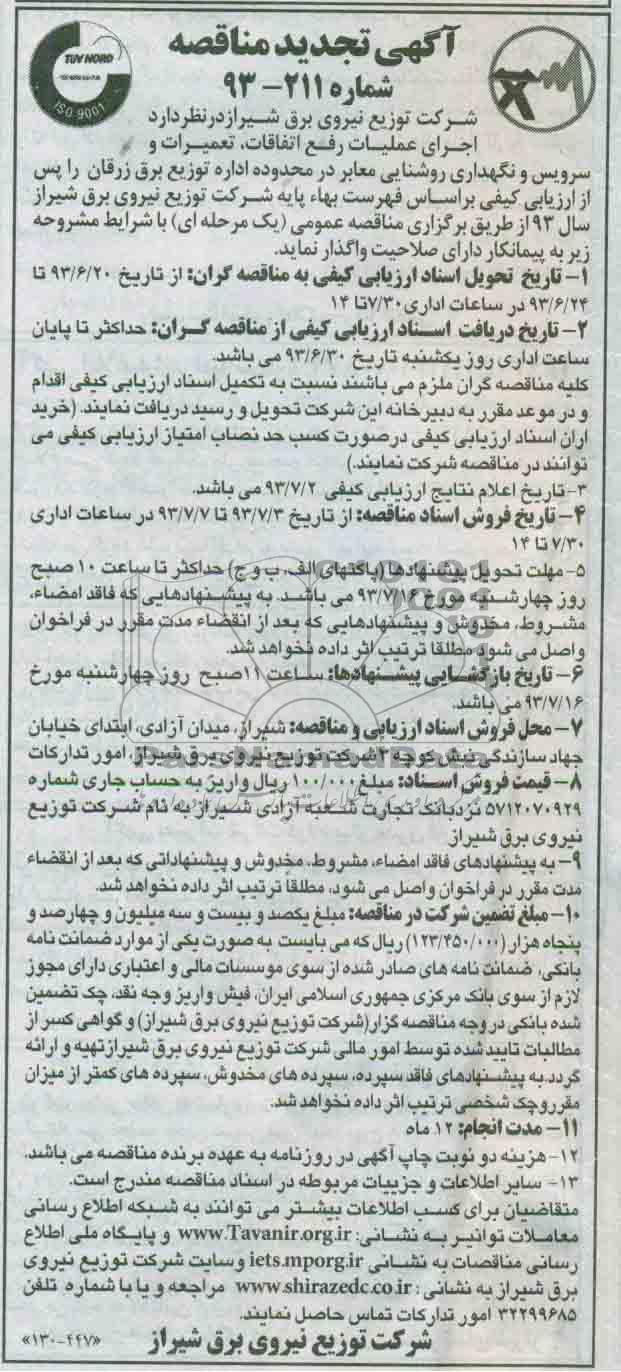 آگهی تجدید مناقصه
شماره ۲۱۱- ۹۳
TÜV NORD
ISO 9001
شرکت توزیع نیروی برق شیراز درنظر دارد
اجرای عملیات رفع اتفاقات، تعمیرات و
سرویس و نگهداری روشنایی معابر در محدوده اداره توزیع برق زرقان را پس
از ارزیابی کیفی براساس فهرست بهاء پایه شرکت توزیع نیروی برق شیراز
سال ۹۳ از طریق برگزاری مناقصه عمومی (یک مرحله ای) با شرایط مشروحه
زیر به پیمانکار دارای صلاحیت واگذار نماید.
۱- تاریخ تحویل اسناد ارزیابی کیفی به مناقصه گران: از تاریخ ۹۳/۶/۲۰ تا
۹۳/۶/۲۴ در ساعات اداری ۷/۳۰ تا ۱۴
۲- تاریخ دریافت اسناد ارزیابی کیفی از مناقصه گران: حداکثر تا پایان
ساعت اداری روز یکشنبه تاریخ ۹۳/۶/۳۰ می باشد.
کلیه مناقصه گران ملزم می باشند نسبت به تکمیل اسناد ارزیابی کیفی اقدام
و در موعد مقرر به دبیرخانه این شرکت تحویل و رسید دریافت نمایند. (خرید
اران اسناد ارزیابی کیفی درصورت کسب حد نصاب امتیاز ارزیابی کیفی می
توانند در مناقصه شرکت نمایند.)
۳-تاریخ اعلام نتایج ارزیابی کیفی ۹۳/۷/۲ می باشد.
۴- تاریخ فروش اسناد مناقصه: از تاریخ ۹۳/۷/۳ تا ۹۳/۷/۷ در ساعات اداری
۷/۳۰ تا ۱۴
۵- مهلت تحویل پیشنهادها (پاکتهای الف، ب و ج) حداکثر تا ساعت ۱۰ صبح
روز چهارشنبه مورخ ۹۳/۷/۱۶ می باشد. به پیشنهادهایی که فاقد امضاء،
مشروط، مخدوش و پیشنهادهایی که بعد از انقضاء مدت مقرر در فراخوان
واصل می شود مطلقا ترتیب اثر داده نخواهد شد.
۶- تاریخ بازگشایی پیشنهادها: ساعت ۱۱صبح روز چهارشنبه مورخ
۹۳/۷/۱۶ می باشد.
۷- محل فروش اسناد ارزیابی و مناقصه: شیراز، میدان آزادی، ابتدای خیابان
جهاد سازندگی نبش کوچه ۳ شرکت توزیع نیروی برق شیراز، امور تدارکات
۸- قیمت فروش اسناد: مبلغ ۱۰۰/۰۰۰ ریال واریز به حساب جاری شماره
۵۷۱۲۰۷۰۹۲۹ نزد بانک تجارت شعبه آزادی شیراز به نام شرکت توزیع
نیروی برق شیراز
۹- به پیشنهادهای فاقد امضاء، مشروط، مخدوش و پیشنهاداتی که بعد از انقضاء
مدت مقرر در فراخوان واصل می شود، مطلقا ترتیب اثر داده نخواهد شد.
۱۰- مبلغ تضمین شرکت در مناقصه: مبلغ یکصد و بیست و سه میلیون و چهارصد و
پنجاه هزار (۱۲۳/۴۵۰/۰۰۰) ریال که می بایست به صورت یکی از موارد ضمانت نامه
بانکی، ضمانت نامه های صادر شده از سوی موسسات مالی و اعتباری دارای مجوز
لازم از سوی بانک مرکزی جمهوری اسلامی ایران، فیش واریز وجه نقد، چک تضمین
شده بانکی در وجه مناقصه گزار(شرکت توزیع نیروی برق شیراز) و گواهی کسر از
مطالبات تایید شده توسط امور مالی شرکت توزیع نیروی برق شیراز تهیه و ارائه
گردد.به پیشنهادهای فاقد سپرده، سپرده های مخدوش، سپرده های کمتر از میزان
مقرر و چک شخصی ترتیب اثر داده نخواهد شد.
۱۱- مدت انجام: ۱۲ ماه
۱۲- هزینه دو نوبت چاپ آگهی در روزنامه به عهده برنده مناقصه می باشد.
۱۳- سایر اطلاعات و جزییات مربوطه در اسناد مناقصه مندرج است.
متقاضیان برای کسب اطلاعات بیشتر می توانند به شبکه اطلاع رسانی
معاملات توانیر به نشانی: www.Tavanir.org.ir و پایگاه ملی اطلاع
رسانی مناقصات به نشانی iets.mporg.ir وسایت شرکت توزیع نیروی
برق شیراز به نشانی: www.shirazedc.co.ir مراجعه و یا با شماره تلفن
۳۲۲۹۹۶۸۵ امور تدارکات تماس حاصل نمایند.
شرکت توزیع نیروی برق شیراز
«۱۳۰-۴۴۷»